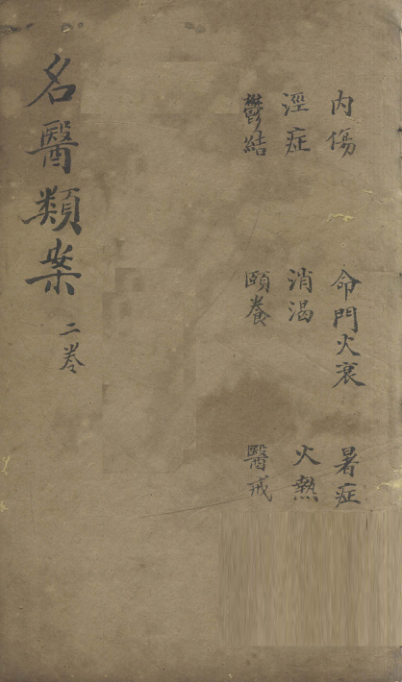 内傷 命門火衰 暑症
溼症 消渴 火熱
鬱結 頤養 醫戒
名醫類案 二卷